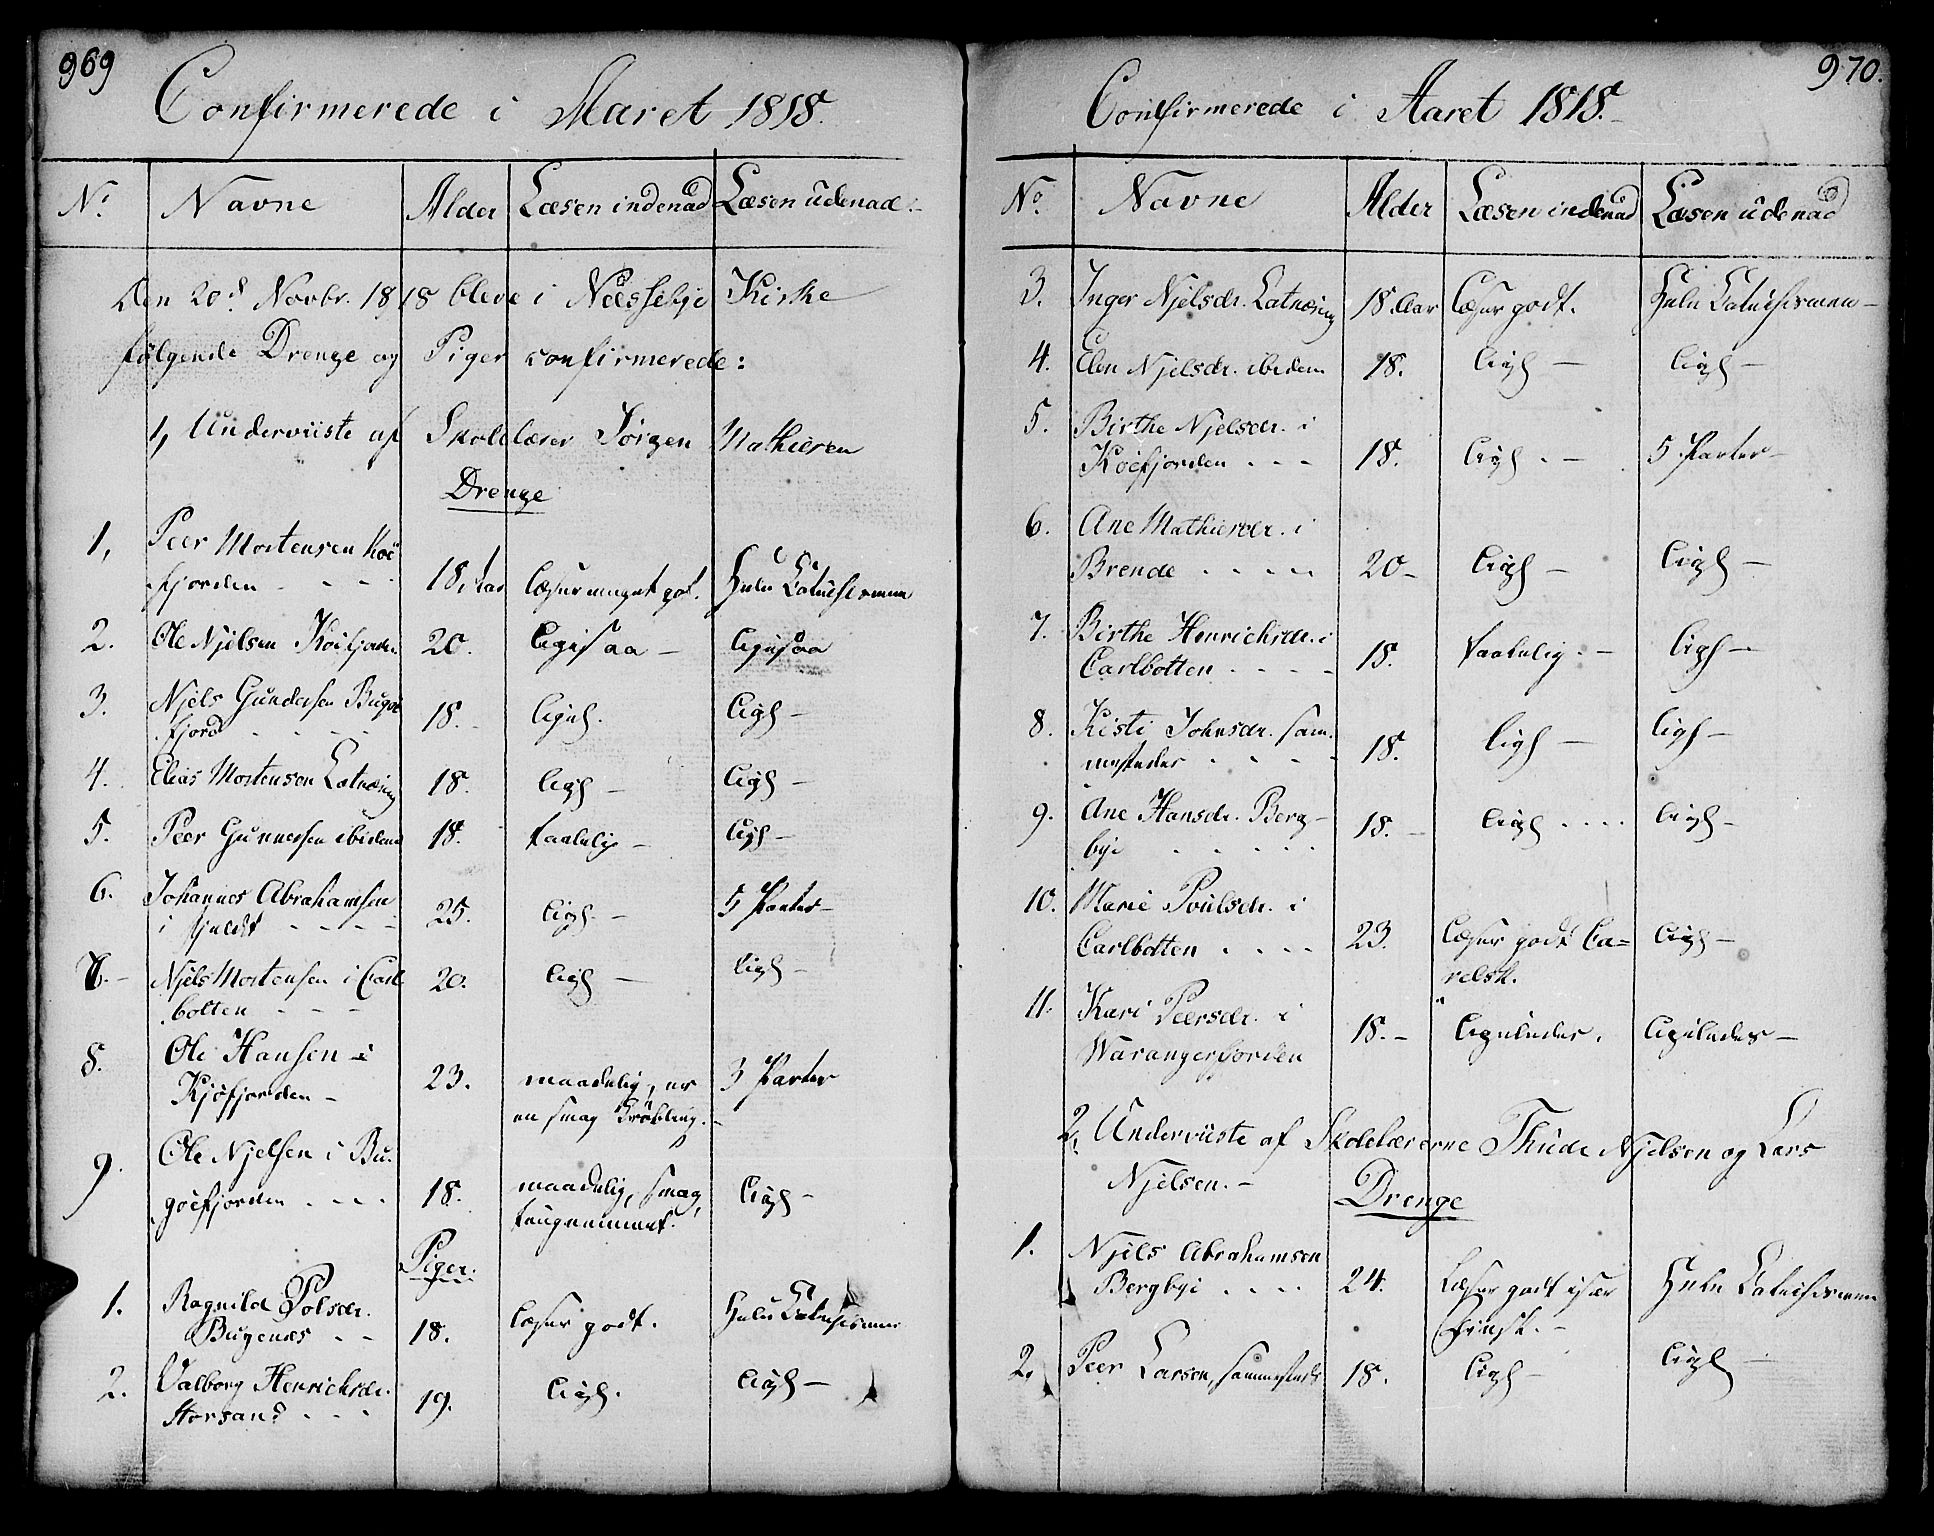 969
Confirmerede i Aaret 1818.
No. Navne Alder Læsen indenad Læsen udenad.
Den 20de Novbr. 1818 bleve i Næssebye Kirke
følgende Drenge og Piger confirmerede:
1, Underviiste af Skolelærer Jörgen Mathiesen
Drenge
1, Peer Mortensen Köe-
fjorden - - - 18 Aar læser meget got. Hele Catechismen
2. Ole Njelsen Köefjorden 20. ligesaa - ligesaa
3. Njels Gundersen Bugöe
fjord - - - 18. - ligel. ligl -
4. Elias Mortensen Latnæring 18. ligl - ligl -
5. Peer Gunnersen ibidem 18. taalelig - ligl -
6. Johannes Abrahamsen
i - - - - 25. ligl. - 5 Parter -
Njels Mortensen i Carl-
botten - - - 20. ligl - ligl -
8. Ole Hansen i
Kjöfjorden - 23. maadelig, er 3 Parter
en svag
9. Ole Njelsen i Bu-
göefjorden - - - 18. maadelig, svag ligl -
Piger.
1. Ragnild Polsdr.
Bugenæs - - 18. læser godt. Hele Catechismen
2. Valborg Henrichsdr.
Storsand - - - 19. ligl. ligl -
970.
Confirmerede i Aaret 1818.
No. Navne Alder Læsen indenad Læsen udenad
3. Inger Njelsdr. Latnæring 18. Aar læser godt. Hele Catechismen -
4. Elen Njelsdr. ibidem 18. ligl - ligl -
5. Birthe Njelsdr. i
Köefjorden - - - 18. ligl. - 5 Parter -
6. Ane Mathiesdr. i
Brende - - - - 20 - ligl - ligl -
7. Birthe Henrichsdr. i
Carlbotten - - - - 18. taalelig. - ligl -
8. Kisti Johnsdr. sam-
mestedes - - - - 18. ligl - ligl -
9. Ane Hansdr. Berg-
bye - - - - - 18. - ligl - - - - ligl -
10. Marie Poulsdr. i
Carlbotten - - - - 23. læser godt Ca=
relsk. ligl -
11. Kari Peersdr. i
Warangerfjorden 18. - ligeledes. ligeledes -
2, Underviiste af Skolelærerne Thude Njelsen og Lars
Njelsen. -
Drenge
1. Njels Abrahamsen
Bergbye - - - - 24. læser godt især Hele Catechismen
finsk. -
2, Peer Larsen, sammesteds 18. ligl - ligl -